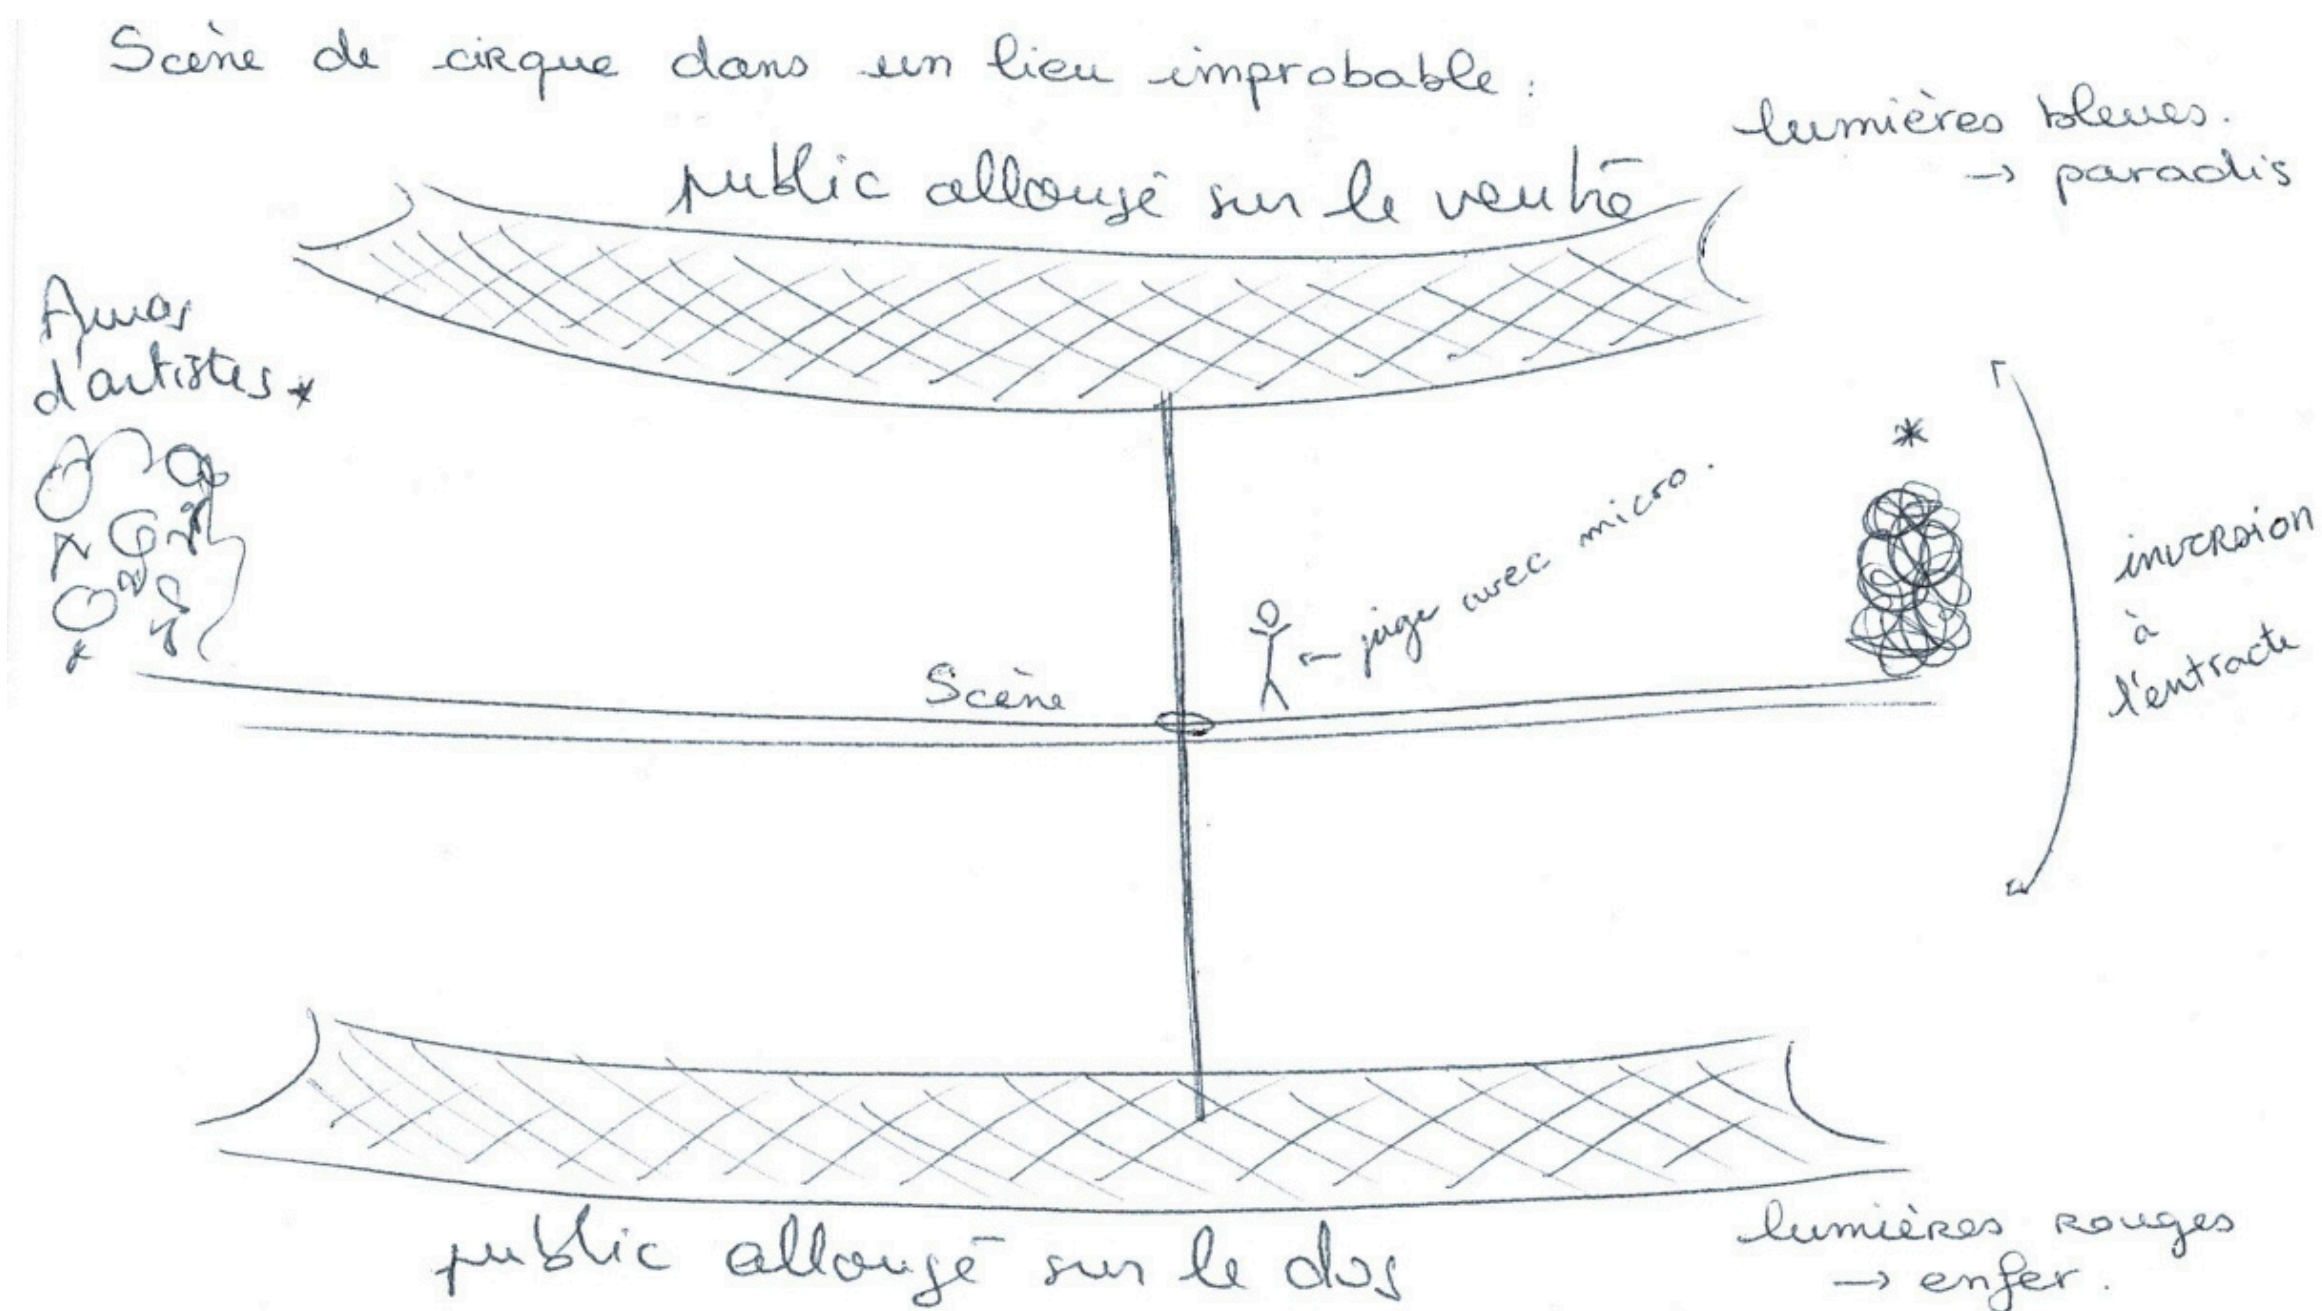 Scène de cirque dans un lieu improbable :
lumières bleues.
→ paradis
public allongé sur le ventre
Amas
d'artistes *
*
← juge avec micro.
Scène
inversion
à
l'entracte
public allongé sur le dos
lumières rouges
→ enfer.